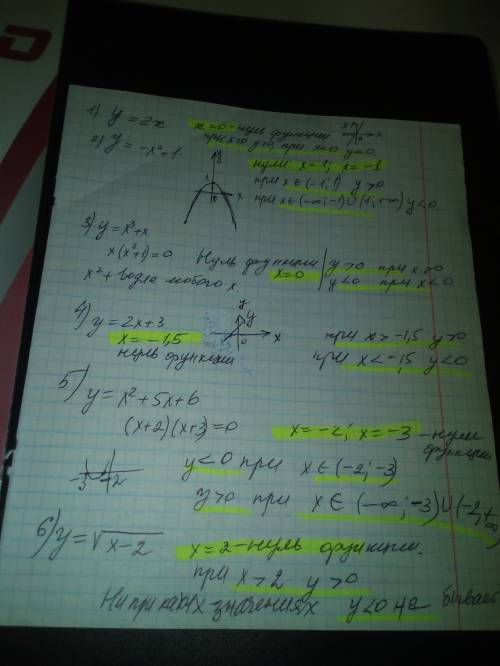 1) y = 2x x=0 - нуль функции
при x>0 y>0, при x<0 y<0.
2) y = -x²+1 нули x=1; x=-1
при x∈(-1;1) y>0
при x∈(-∞;-1)∪(1;+∞) y<0.
3) y=x³+x
x(x²+1)=0 Нуль функции x=0 y>0 при x>0
x²+ для любого x. y<0 при x<0.
4) y=2x+3
x=-1,5 при x>-1,5 y>0
нуль функции при x<-1,5 y<0
5) y=x²+5x+6
(x+2)(x+3)=0 x=-2; x=-3 - нули функции
-3 -2 y<0 при x∈(-2;-3)
y>0 при x∈(-∞;-3)∪(-2;+∞)
6) y=√x-2 x=2 - нуль функции.
при x>2 y>0
Ни при каких значениях y<0 не бывает